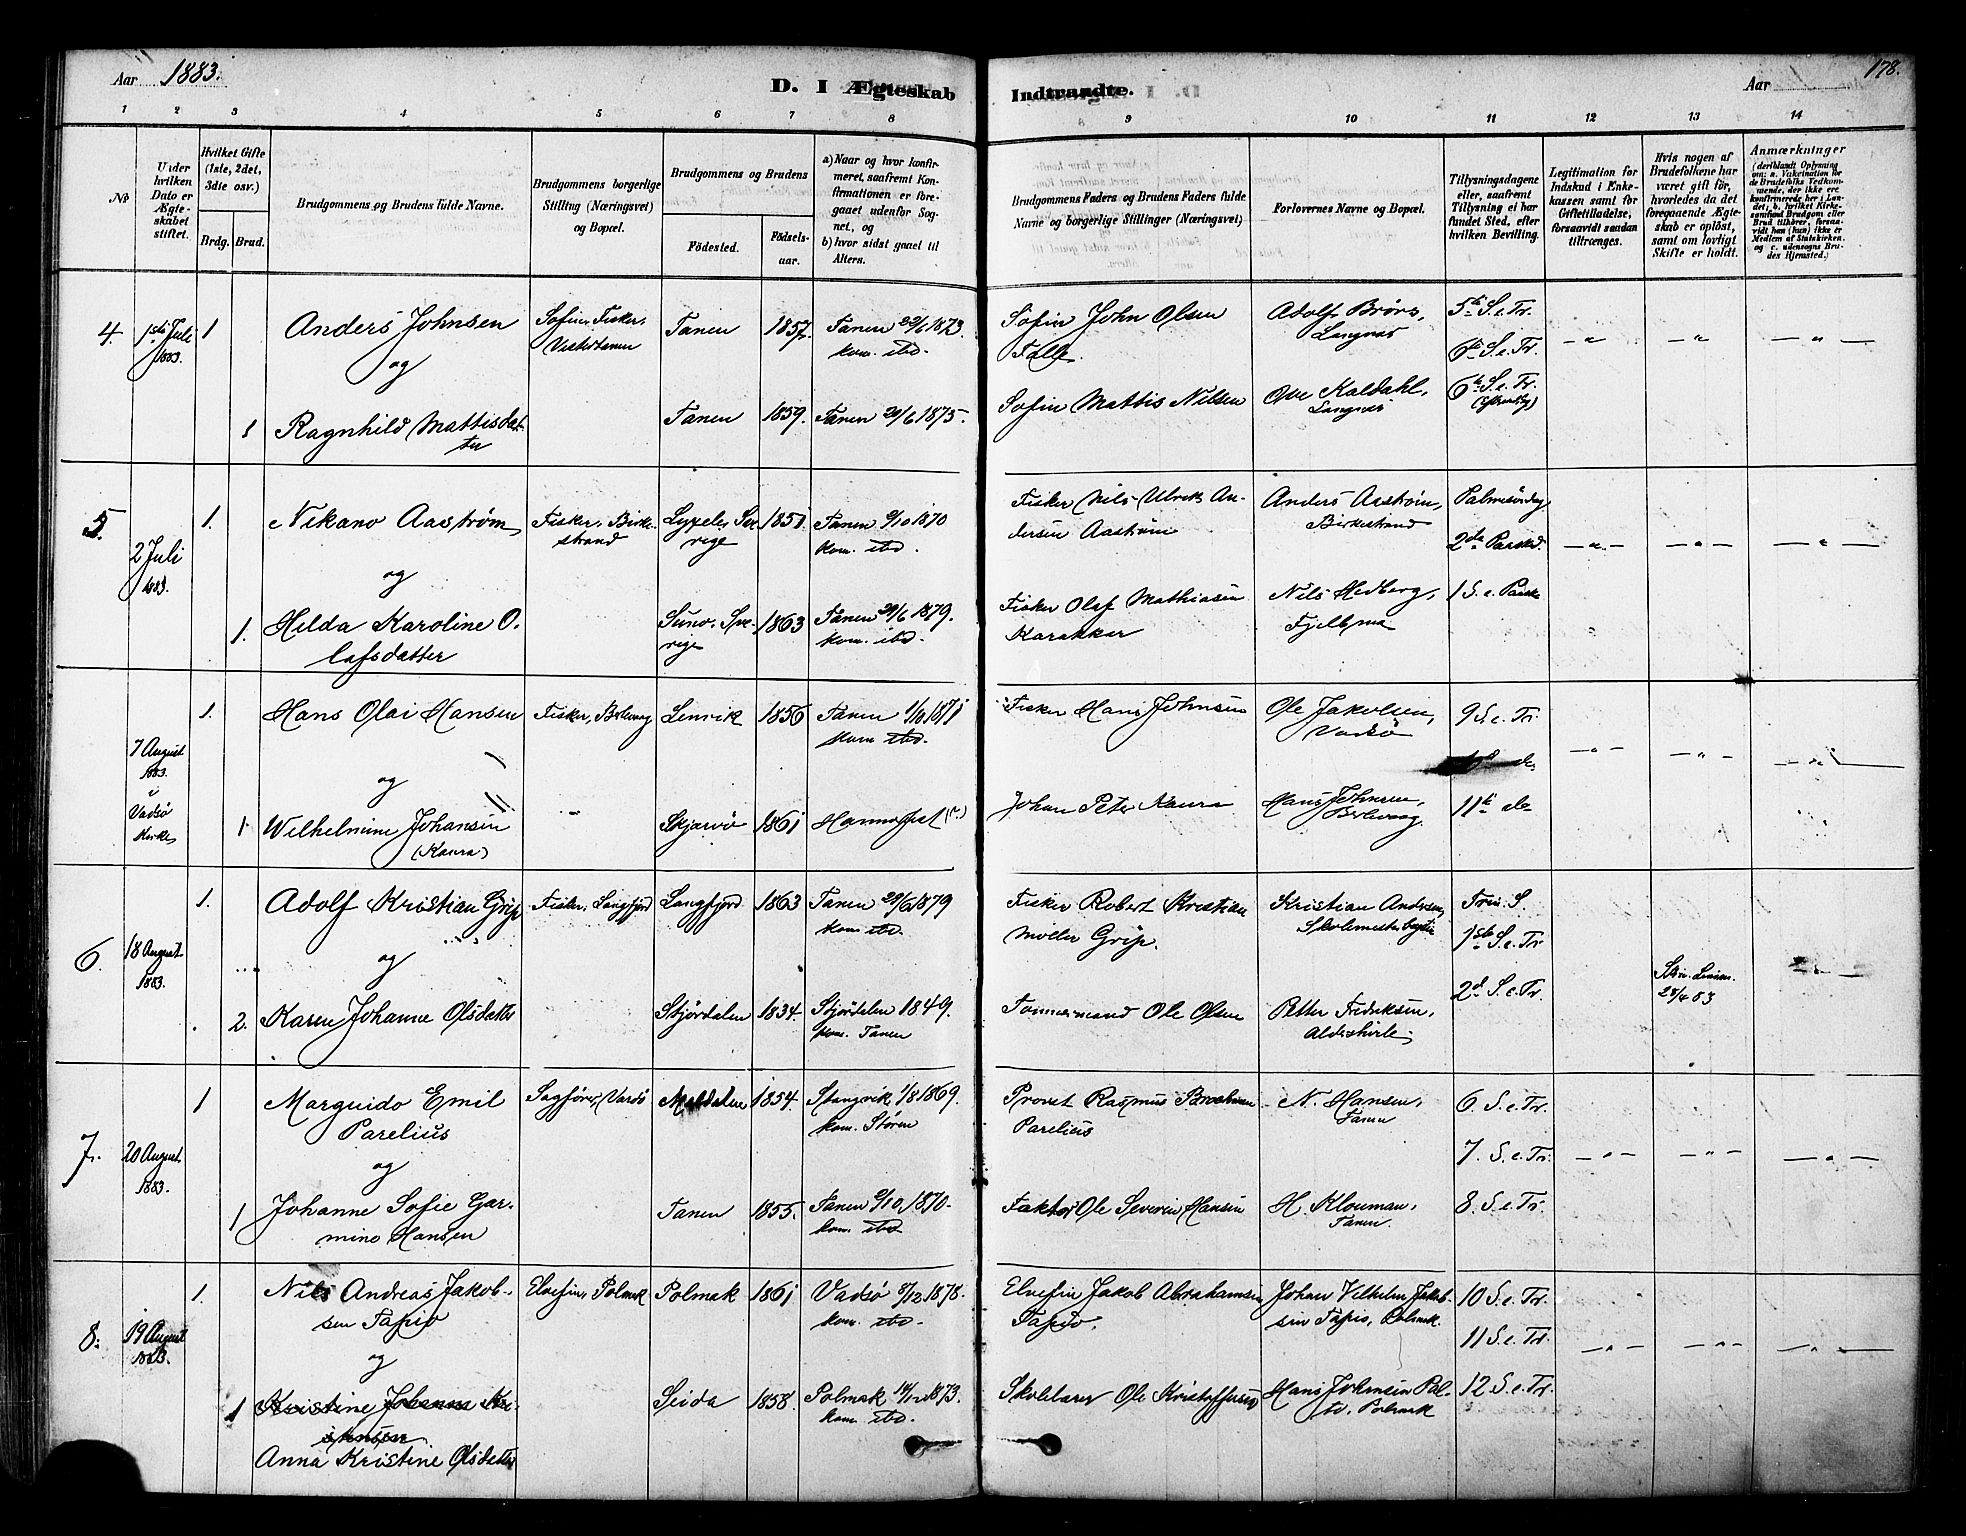 Aar 1883.
D. I Ægteskab
Indtraadte.
Aar
178.
1 2 3 4 5 6 7 8 9 10 11 12 13 14
No
Under hvilken Dato er Ægteskabet stiftet.
Hvilket Gifte (1ste, 2det, 3die osv.)
Brdg. Brud.
Brudgommens og Brudens fulde Navne.
Brudgommens borgerlige Stilling (Næringsvei) og Bopæl.
Brudgommens og Brudens
Fødested.
Fødselsaar.
a) Naar og hvor konfirmeret, saafremt Konfirmationen er foregaaet udenfor Sognet, og
b) hvor sidst gaaet til Alters.
Brudgommens Faders og Brudens Faders fulde Navne og borgerlige Stillinger (Næringsvei)
Forlovernes Navne og Bopæl.
Tillysningsdagene eller, saafremt Tillysning ei har fundet Sted, efter hvilken Bevilling.
Legitimation for Indskud i Enkekassen samt for Giftetilladelse, forsaavidt saadan tiltrænges.
Hvis nogen af Brudefolkene har været gift før, hvorledes da det foregaaende Ægteskab er opløst, samt om lovligt Skifte er holdt.
Anmærkninger
4 1ste Juli 1883 1 Anders Johnsen Søfin, Fisker, Vestertanen Tanen 1857. Tanen 22/6 1873. kom. ibd. Søfin John Olsen Adolf Brørs, Langnæs 5te S. e. Tr.
og 6te S. e. Tr. — " — — " — — " —
1 Ragnhild Mattisdatter Tanen 1859. Tanen 20/6 1875. Søfin Mattis Nilsen Ove Kaldahl, Langnæs 6te S. e. Tr.
5. 2 Juli 1883. 1. Nikano Aastrøm, Fisker, Birkestrand Sverige 1851. Tanen 9/10 1870 kom. ibd. Fisker Nils Ulrik Andersen Aastrøm Anders Aastrøm, Birkestrand Palmesøndag
og 2den Paaskd. — " — — " — — " —
1. Hilda Karoline Olafsdatter Sverige 1863 Tanen 29/6 1879. kom. ibd. Fisker Olaf Mathiasen Karakker Nils Hedberg, Fjeldma 1 S. e. Paaske
7 August 1883. i Vadsø Kirke 1. Hans Olai Hansen Fisker, Berlevaag Lenvik 1856 Tanen 1/10 1871 kom ibd. Fisker Hans Johnsen Ole Jakobsen, Vadsø 9 S. e. Tr.
og — " — — " — — " —
1. Wilhelmine Johansen (Kaura) Skjærvø 1861 Hammerfest (?) Johan Peter Kaura Hans Johnsen, Berlevaag. 11te do
6. 18 August 1883. 1. Adolf Kristian Grip Fisker, Langfjord Langfjord 1863 Tanen 29/6 1879 kom. ibd. Fisker Robert Kristian Møller Grip. Kristian Andersen, Skolemester Trin. S.
og 1ste S. e. Tr
2. Karen Johanne Olsdatter Stjørdalen 1834. Stjørdalen 1849. kom. Tanen Tømmermand Ole Olsen Petter Fredriksen, 2d S. e. Tr. 28/4 83
7. 20 August 1883. 1 Marguido Emil Parelius Sagfører, Vardø 1854. Stangvik 1/8 1869. kom. Støren Provst Rasmus Parelius N. Hansen, Tanen 6. S. e. Tr.
og 7. S. e. Tr. — " — — " — — " —
1 Johanne Sofie Garmino Hansen Tanen 1855. Tanen 9/10 1870. kom. ibd Faktor Ole Severin Hansen H. Klouman, Tanen. 8. S. e. Tr.
8. 19 August 1883. 1. Nils Andreas Jakobsen Tapio Elvefin, Polmak Polmak 1861 Vadsø 8/12 1878. kom. ibd. Elvefin Jakob Abrahamsen Tapio. Johan Vilhelm Jakobsen Tapio, Polmak. 10 S. e. Tr.
og 11 S. e. Tr. — " — — " — — " —
1 Kristine Johanna Kristensen Anna Kristine Olsdatter Seida 1858. Polmak 14/12 1873. kom. ibd. Skolelærer Ole Kristoffersen Hans Johnsen Balto, Polmak 12 S. e. Tr.